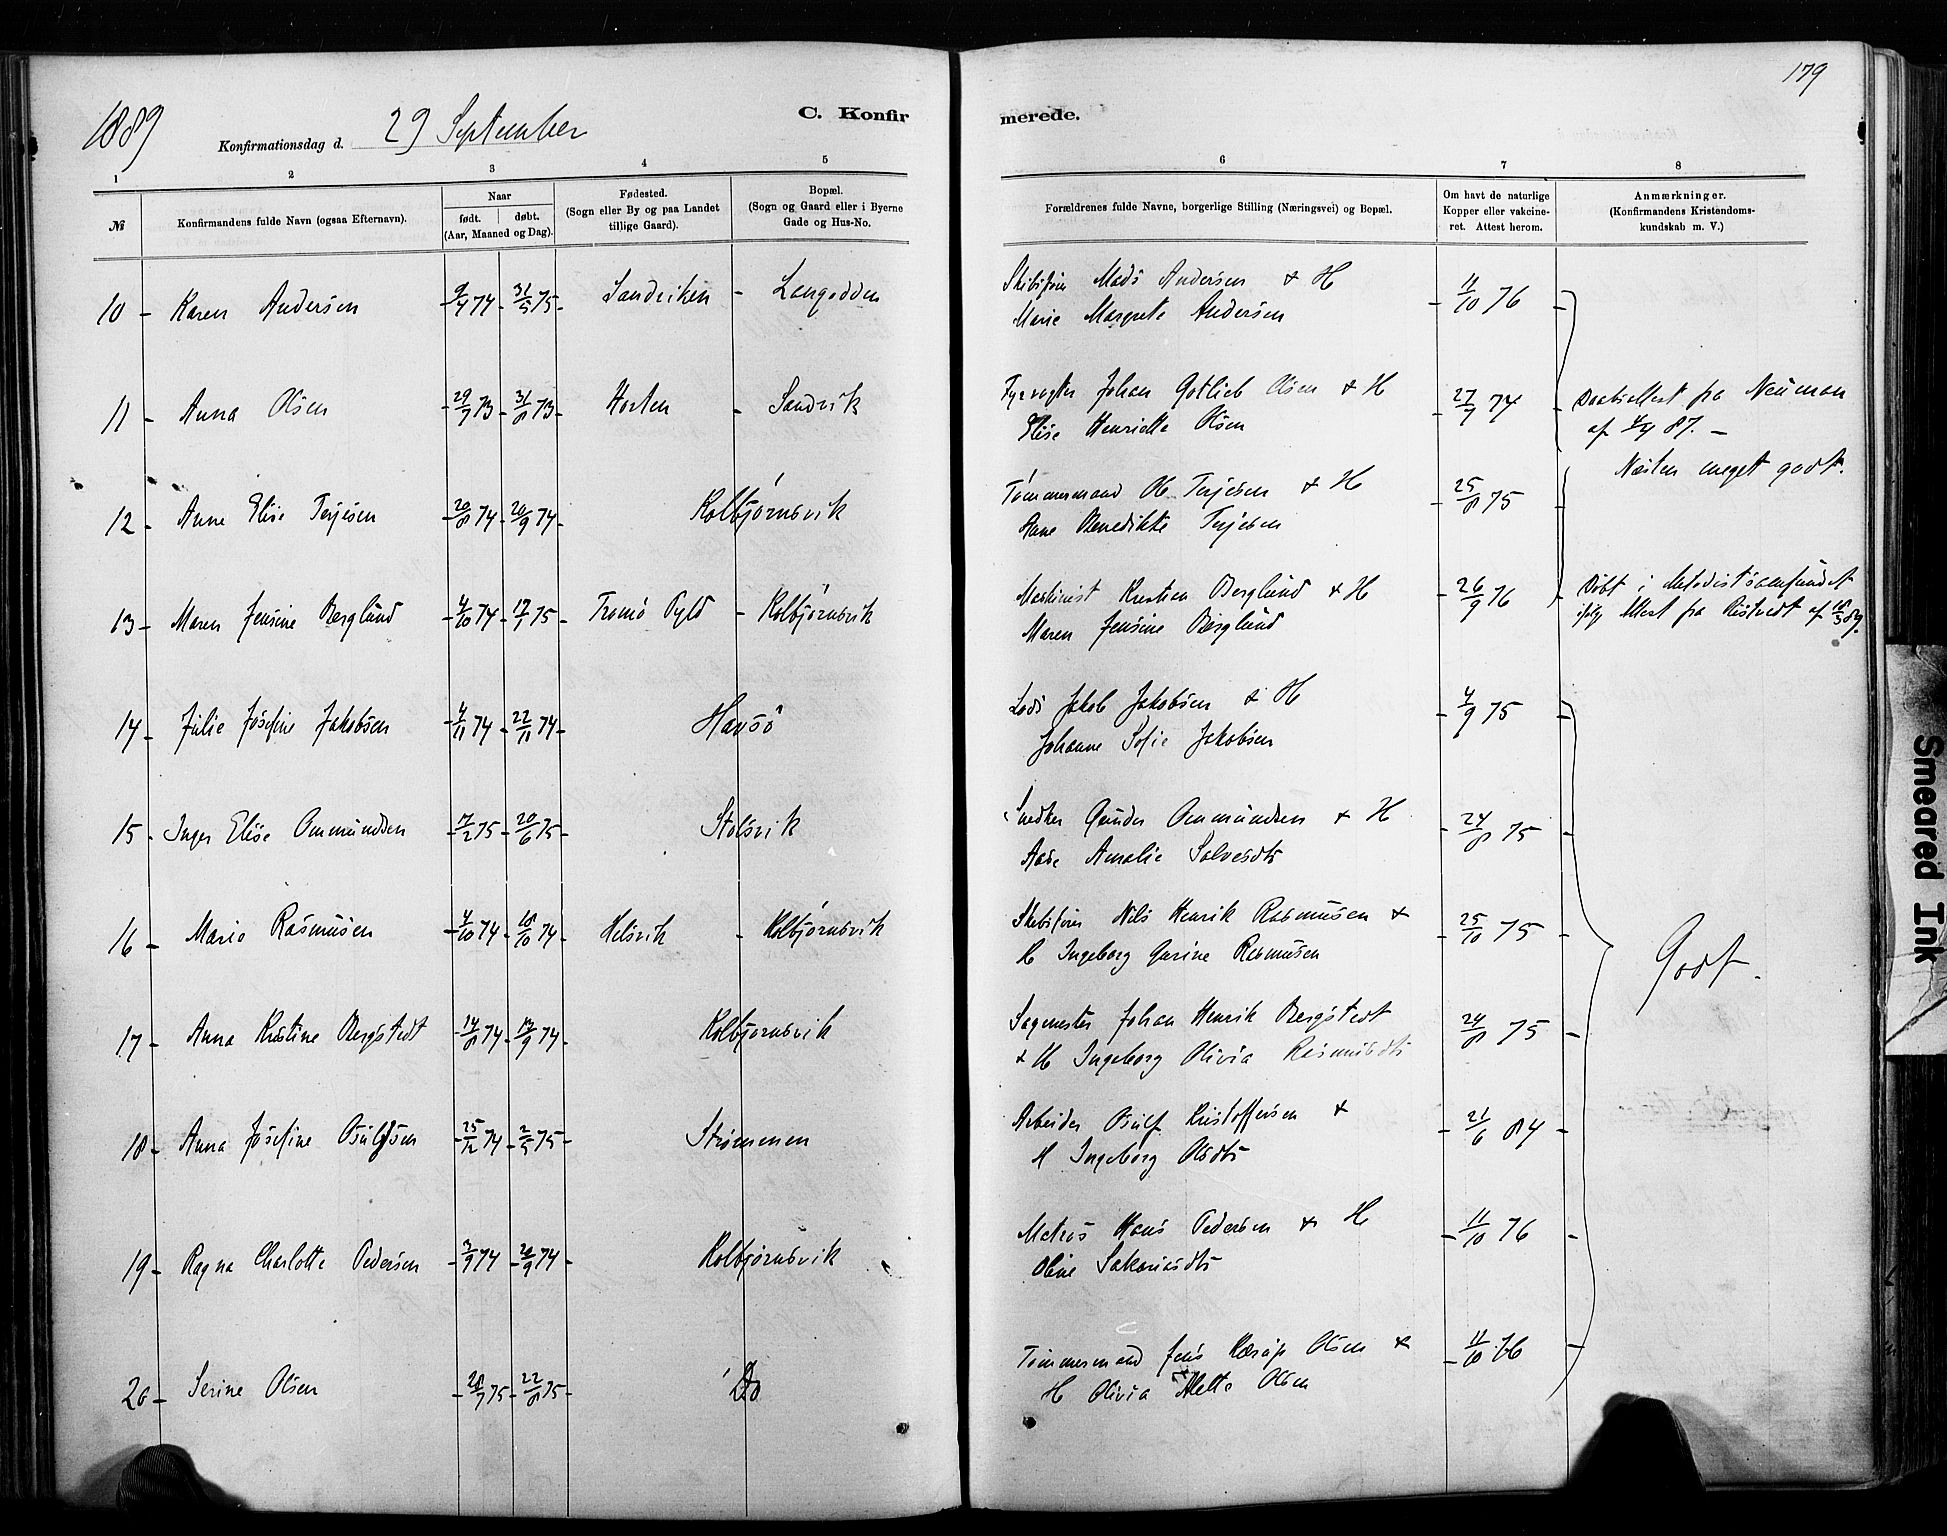 1889
Konfirmationsdag d. 29 September
C. Konfirmerede.
179
1 2 3 4 5 6 7 8
№
Konfirmandens fulde Navn (ogsaa Efternavn).
Naar
født. døbt.
(Aar, Maaned og Dag).
Fødested.
(Sogn eller By og paa Landet
tillige Gaard).
Bopæl.
(Sogn og Gaard eller i Byerne
Gade og Hus-No.
Forældrenes fulde Navne, borgerlige Stilling (Næringsvei) og Bopæl.
Om havt de naturlige
Kopper eller vakcine-
ret. Attest herom.
Anmærkninger.
(Konfirmandens Kristendoms-
kundskab m. V.)
10 - Karen Andersen 9/4 74 - 31/5 75 - Sandviken - Langodden
Skibsfører Mads Andersen & H - 11/10 76
Marie Margrete Andersen
11 - Anna Olsen 29/7 73 - 31/8 73 - Horten - Sandvik
Fyrvogter Johan Gotlieb Olsen & H - 27/7 74 - Daabsattest fra Neuman
Elise Henriette Olsen af 4/4 87. -
Næsten meget godt.
12 - Anne Elise Terjesen 20/8 74 - 20/9 74 - Kolbjørnsvik
Tømmermand Ole Terjesen & H - 25/8 75
Anne Benedikte Terjesen
13 - Maren Jensine Berglund 4/10 74 - 17/7 75 - Tromø Pgld - Kolbjørnsvik
Maskinist Kristen Berglund & H - 26/9 76 - Døbt i Metodistsamfundet
Maren Jensine Berglund ifølg Attest fra
af 18/3 89.
14 - Julie Josefine Jakobsen 4/11 74 - 22/11 74 - Havsø
Lods Jakob Jakobsen & H - 4/9 75
Johanne Sofie Jakobsen
15 - Inger Elise Ommundsen 17/2 75 - 20/6 75 - Stølsvik
Snedker Gunder Ommundsen & H - 24/8 75
Aase Amalie Salvesdtr
16 - Marie Rasmusen 4/10 74 - 18/10 74 - Helsvik - Kolbjørnsvik
Skibsfører Nils Henrik Rasmusen & - 25/10 75
H Ingeborg Gurine Rasmusen
Godt.
17 - Anna Kristine Bergstedt 14/8 74 - 13/9 74 - Kolbjørnsvik
Sagmester Johan Henrik Bergstedt - 24/8 75
& H Ingeborg Olivia Rasmusdtr
18 - Anna Josefine Osulfsen 25/12 74 - 2/5 75 - Strømmen
Arbeider Osulf Kristoffersen & - 21/6 84
H Ingeborg Olsdtr
19 - Ragna Charlotte Pedersen 3/9 74 - 20/9 74 - Kolbjørnsvik
Matros Hans Pedersen & H - 11/10 76
Oline Sakariasdtr
20 - Serine Olsen 28/7 75 - 22/8 75 - Do
Tømmermand Jens Kærup Olsen & - 11/10 76
H Olivia Mette Olsen
Smeared Ink